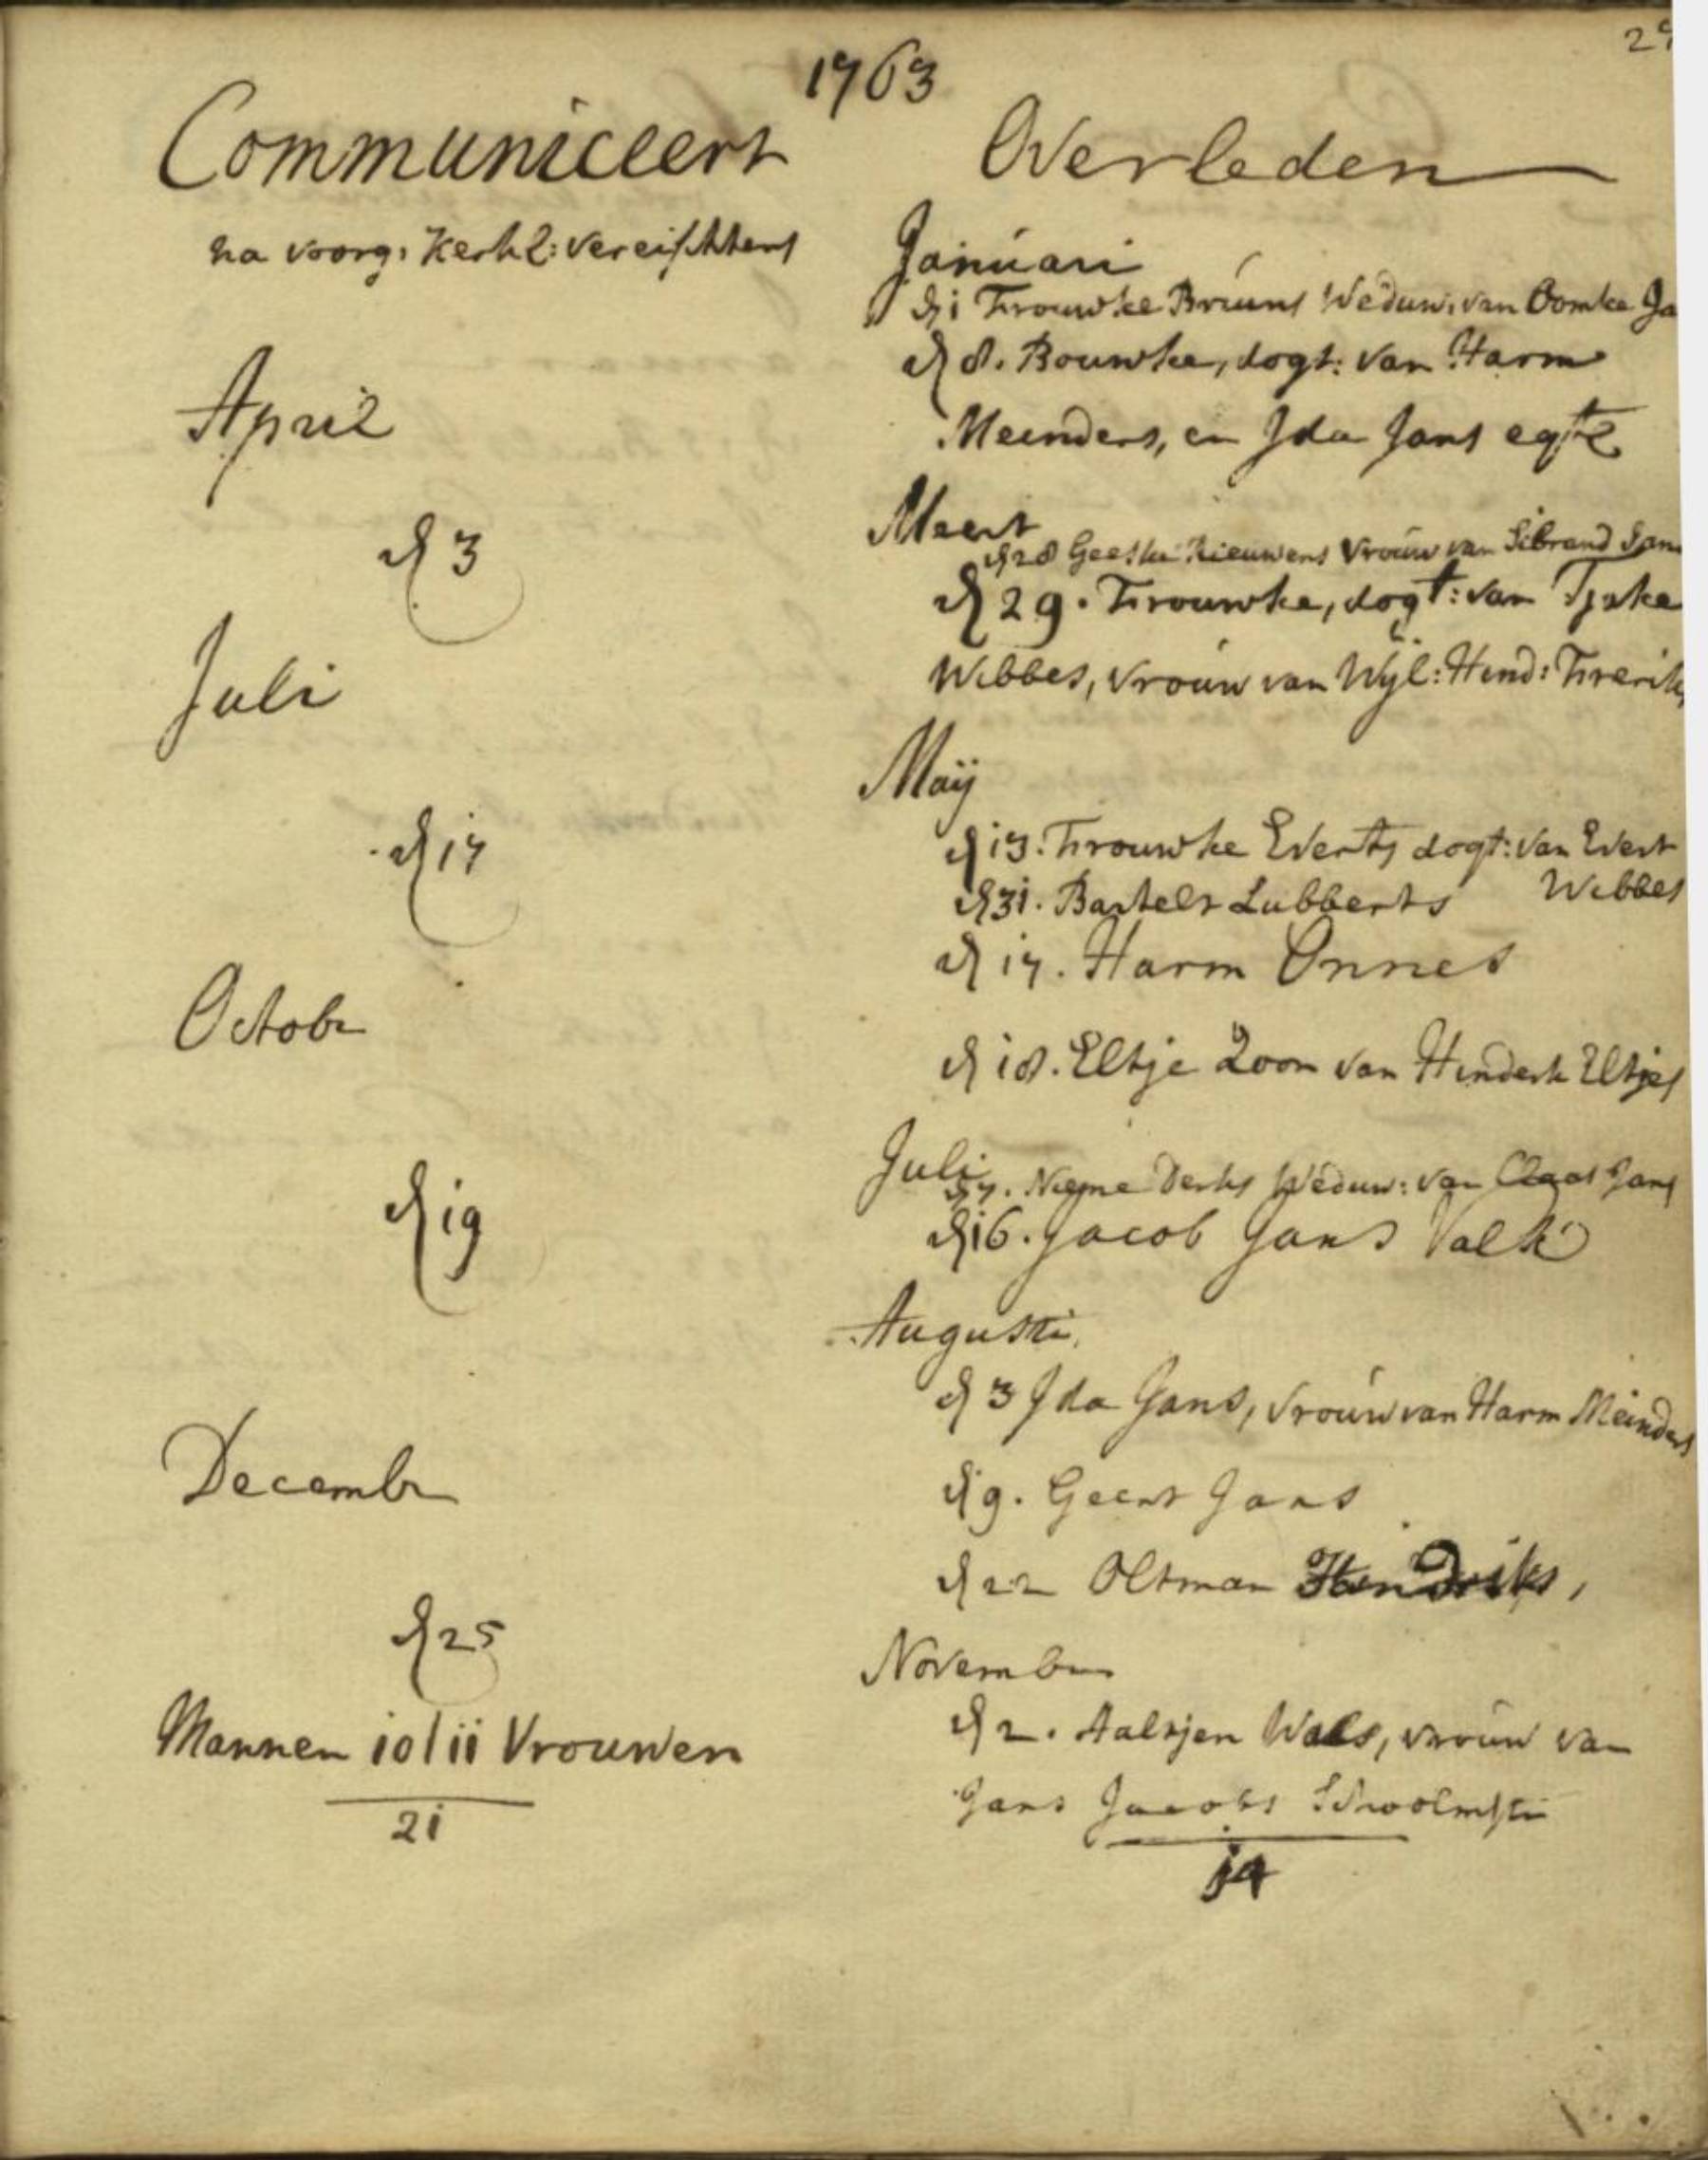 1763
Communiceert
na voorg: Kerkl: vereischtens
April
d 3
Juli
d 17
Octobr
d 19
Decembr
d 25
Mannen 10 | 11 Vrouwen
21
Overleden
Januari
d 1 Trouwke Bruuns Weduw: van Oomke Ja
d 8. Bouwke, dogt: van Harm
Meenders, en Ida Jans egte
Meert
d 28 Geeske Rieuwens Vrouw van Sibrand Jans
d 29. Trouwke, dogt: van Tjake
Wibbes, vrouw van Wijl: Hend: Freriks
Maij
d 13. Trouwke Everts dogt: van Evert
Wibbes
d 31. Bartelt Lubberts
d 17. Harm Onnes
d 18. Eltje Zoon van Henderk Eltjes
Juli
d 7. Derks Weduw: van Claas Jans
d 16. Jacob Jans Valk
Augusti
d 3 Ida Jans, vrouw van Harm Meinders
d 9. Geert Jans
d 22 Oltman Hendriks,
Novembr
d 2. Aaltjen Wals, vrouw van
Jans Jacobs Schoolmstr
14